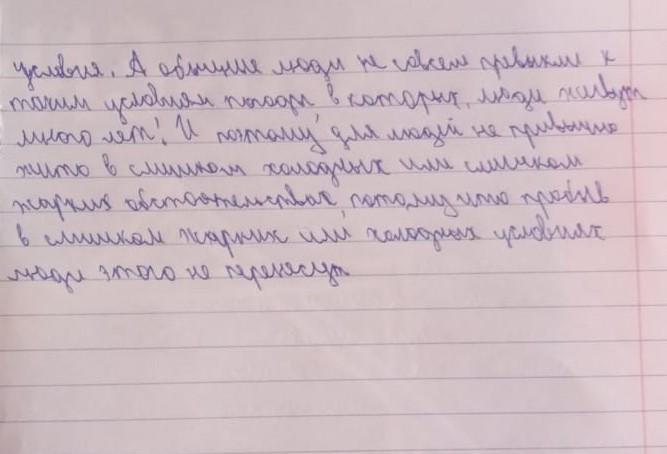 условия. А обычные люди не совсем привыкли к
таким условиям погоды в которых, люди живут
много лет! И поэтому для людей не привычно
жить в слишком холодных или слишком
жарких обстоятельствах, потому что пробыв
в слишком жарких или холодных условиях
люди этого не перенесут